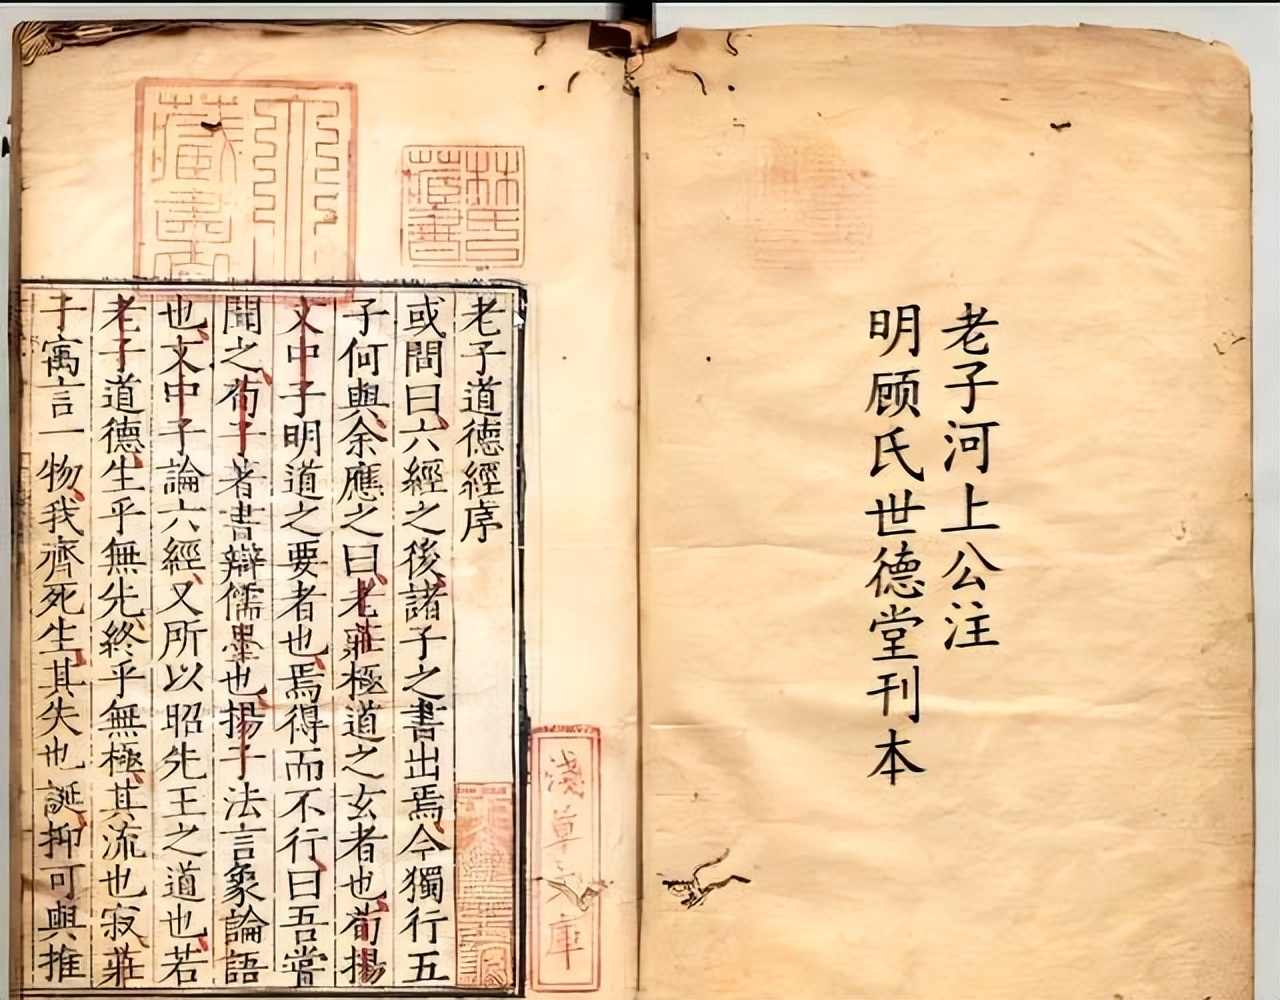 老子河上公注
明顾氏世德堂刊本
老子道德經序
或問曰六經之後諸子之書出焉今獨行五
子何與余應之曰老莊極道之玄者也荀揚
文中子明道之要者也焉得而不行曰吾嘗
聞之荀子著書辯儒墨也揚子法言象論語
也文中子論六經又所以昭先王之道也若
老子道德生乎無先終乎無極其流也寂莊
子寓言一物我齊死生其失也誕抑可與推
林氏藏書
淺草文庫